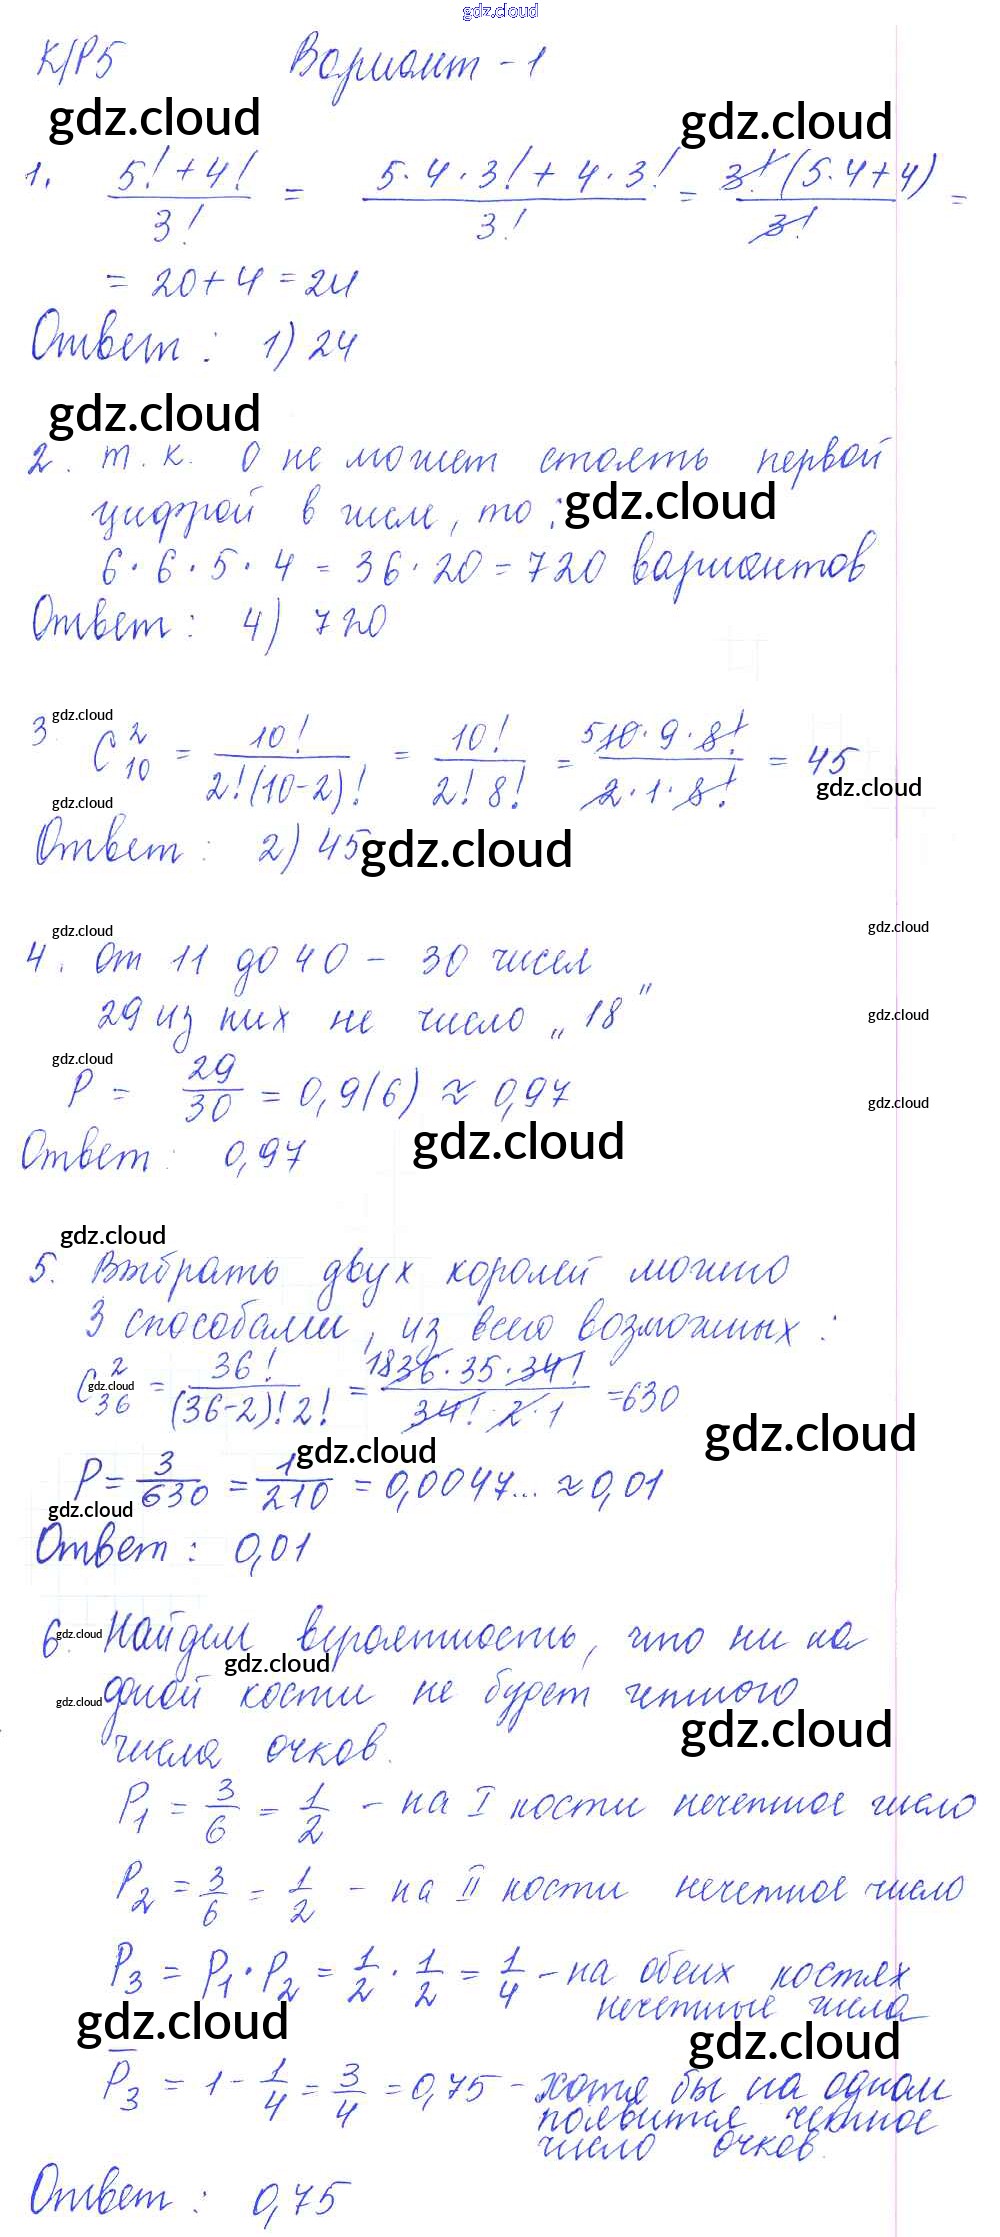 gdz.cloud
К/Р5 Вариант - 1
gdz.cloud gdz.cloud
1. (5! + 4!)/3! = (5·4·3! + 4·3!)/3! = 3!(5·4+4)/3! =
= 20 + 4 = 24
Ответ: 1) 24
gdz.cloud
2. т.к. 0 не может стоять первой
цифрой в числе, то: gdz.cloud
6·6·5·4 = 36·20 = 720 вариантов
Ответ: 4) 720
gdz.cloud
3. C²₁₀ = 10!/(2!(10-2)!) = 10!/(2! 8!) = 5 10·9·8!/(2·1·8!) = 45
gdz.cloud gdz.cloud
Ответ: 2) 45 gdz.cloud
gdz.cloud gdz.cloud
4. От 11 до 40 – 30 чисел
29 из них не число „18"
gdz.cloud
gdz.cloud
P = 29/30 = 0,9(6) ≈ 0,97
gdz.cloud
Ответ: 0,97 gdz.cloud
gdz.cloud
5. Выбрать двух королей можно
3 способами, из всего возможных:
C²₃₆ = 36!/((36-2)! 2!) = 18 36·35·34!/(34!·2·1) = 630
gdz.cloud
gdz.cloud
gdz.cloud
P = 3/630 = 1/210 = 0,0047... ≈ 0,01
gdz.cloud
Ответ: 0,01
6. Найдем вероятность, что ни на
gdz.cloud
gdz.cloud
одной кости не будет четного
gdz.cloud
gdz.cloud
числа очков.
P₁ = 3/6 = 1/2 – на I кости нечетное число
P₂ = 3/6 = 1/2 – на II кости нечетное число
P₃ = P₁·P₂ = 1/2 · 1/2 = 1/4 – на обеих костях
нечетные числа
gdz.cloud gdz.cloud
P̅₃ = 1 - 1/4 = 3/4 = 0,75 – хотя бы на одном
появится четное
число очков.
Ответ: 0,75